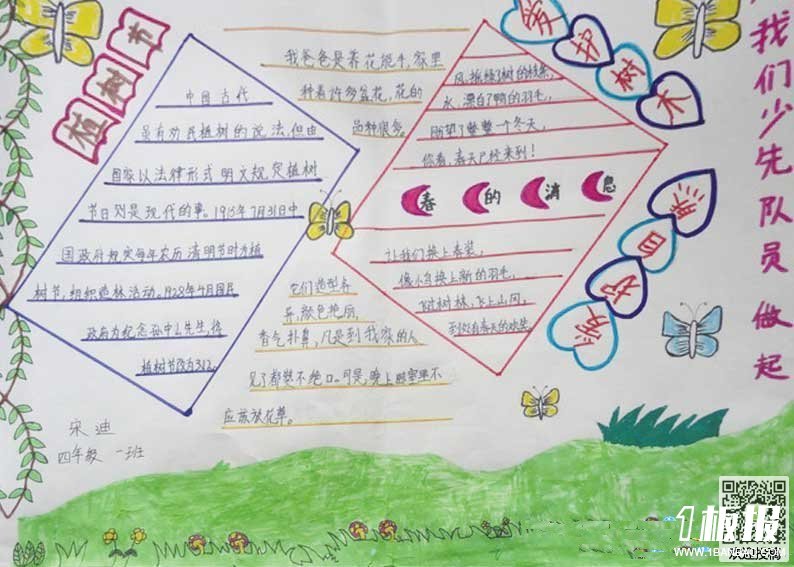 植树节
中国古代
虽有劝民植树的说法,但由
国家以法律形式明文规定植树
节日则是现代的事。1915年7月31日中
国政府规定每年农历清明节时为植
树节,组织造林活动。1928年4月国民
政府为纪念孙中山先生,将
植树节改为312。
宋迪
四年级 一班
我爸爸是养花能手,家里
种着许多盆花,花的
品种很多。
它们造型各
异,颜色艳丽,
香气扑鼻,凡是到我家的人
见了都赞不绝口。可是,晚上卧室里不
应该放花草。
爱护树木
风,摇绿了树的枝条,
水,漂白了鸭的羽毛,
盼望了整整一个冬天,
你看,春天已经来到!
春的消息
让我们换上春装,
像小鸟换上新的羽毛,
飞过树林,飞上山冈,
到处有春天的欢笑。
我们少先队员做起
1板报
WWW.1BANBAO.COM